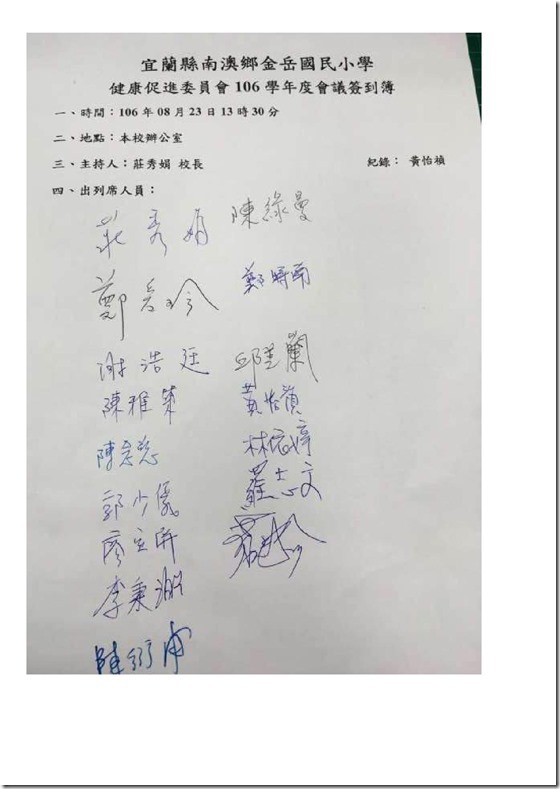 宜蘭縣南澳鄉金岳國民小學
健康促進委員會 106 學年度會議簽到簿
一、時間：106 年 08 月 23 日 13 時 30 分
二、地點：本校辦公室
三、主持人：莊秀娟 校長 紀錄： 黃怡禎
四、出列席人員：
莊秀娟 陳綠曼
鄭 鄭時雨
謝浩廷 邱 蘭
陳雅
陳 黃怡
郭少儀 林
廖 羅志文
李秉
陳